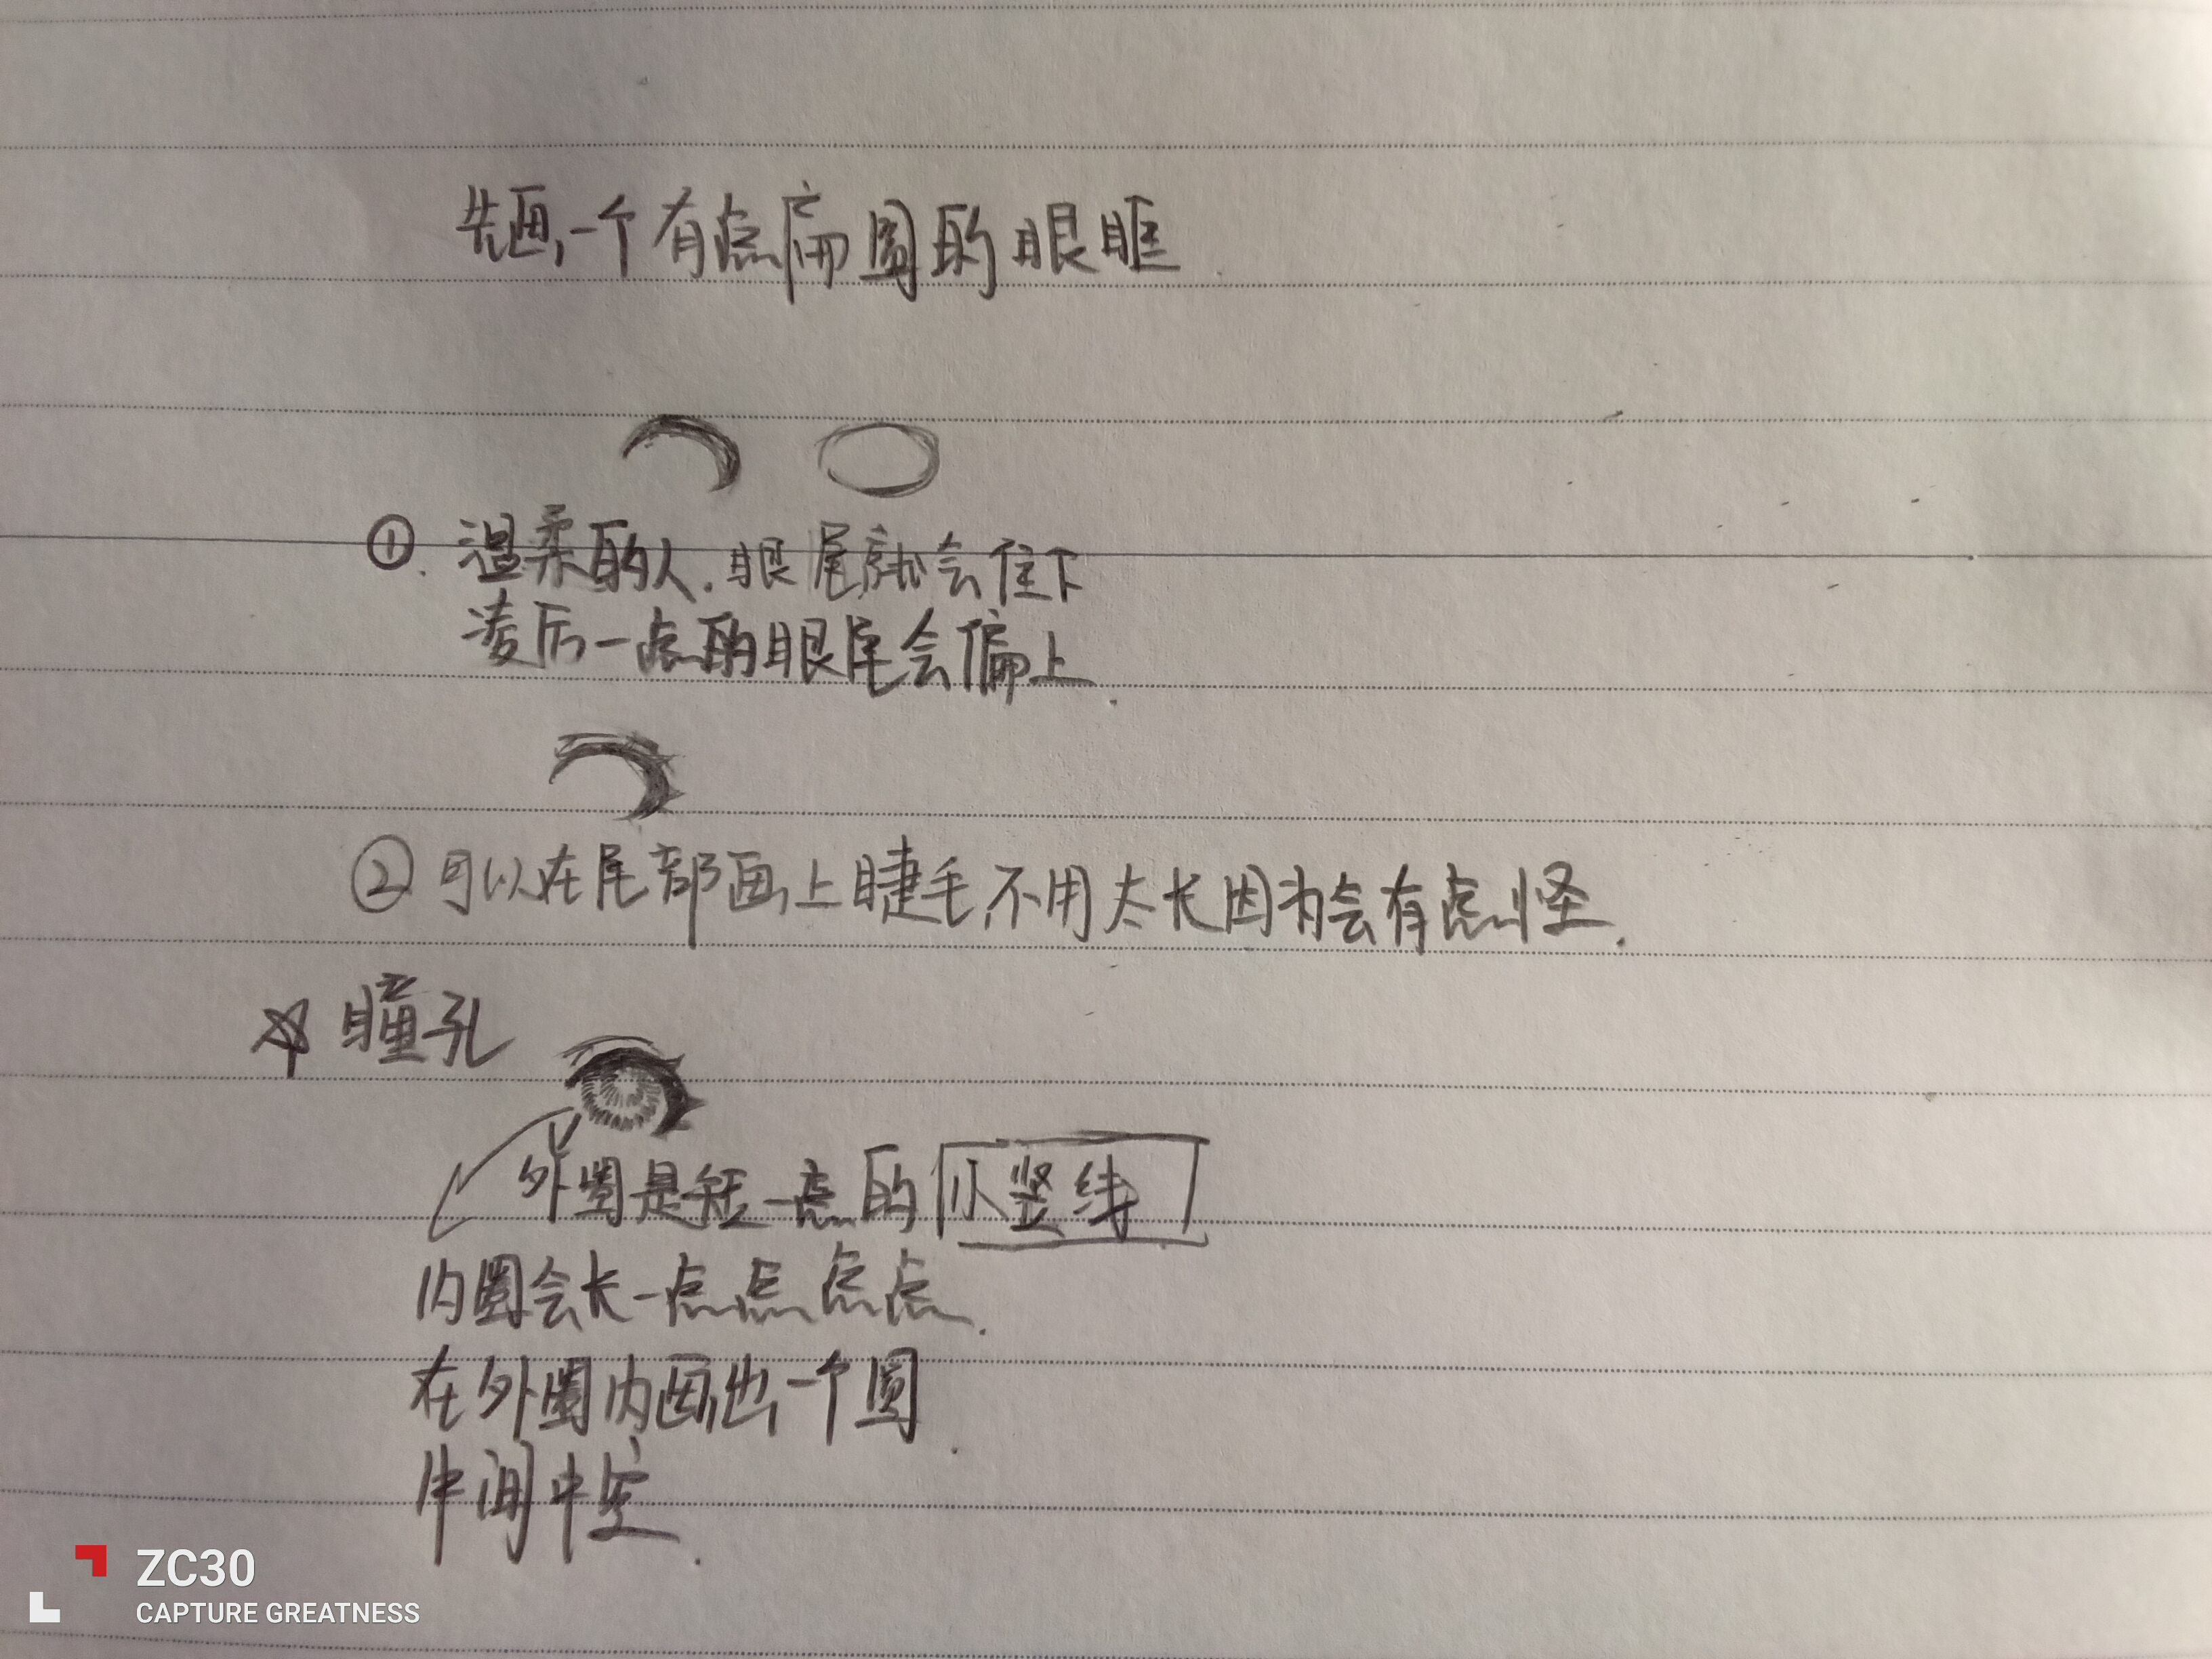 先画一个有点扁圆的眼眶.
①.温柔的人.眼尾就会往下
凌厉一点的眼尾会偏上.
②可以在尾部画上睫毛,不用太长因为会有点怪.
☆瞳孔
外圈是短一点的小竖线
内圈会长一点点点点.
在外圈内画出一个圆.
中间中空.
ZC30
CAPTURE GREATNESS